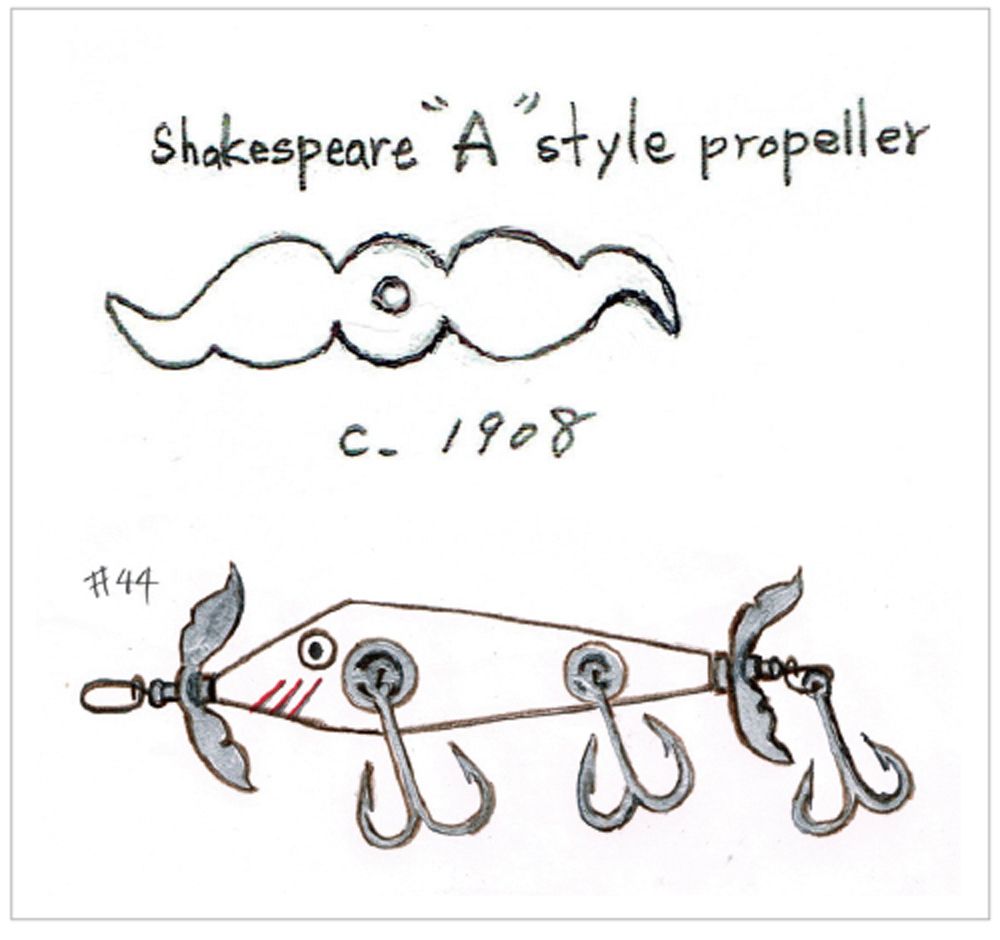 Shakespeare "A" style propeller
c. 1908
#44